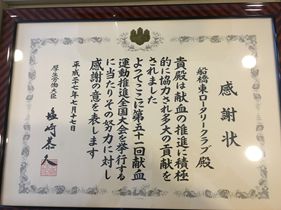 感謝状
船橋東ロータリークラブ殿
貴殿は献血の推進に積極
的に協力され多大の貢献を
されました
よってここに第五十一回献血
運動推進全国大会を挙行する
に当たりその努力に対し
感謝の意を表します
平成二十七年七月十七日
厚生労働大臣
塩崎恭久